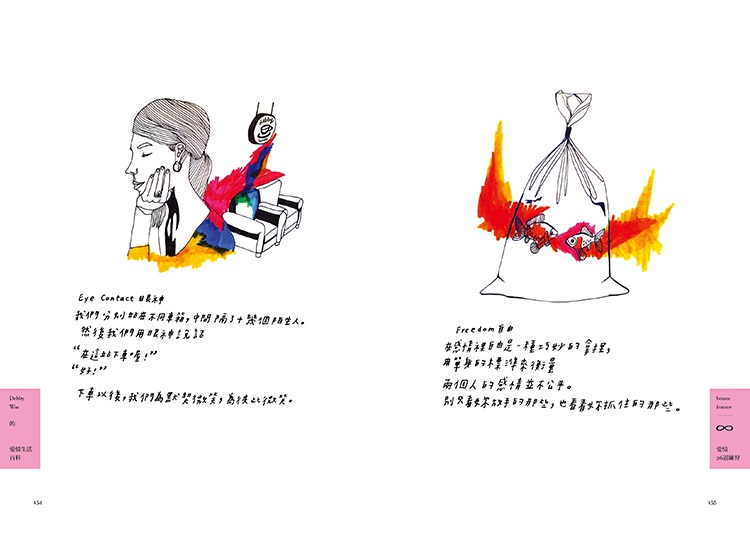 Debby
Eye Contact 眼神
我們分別站在不同車箱,中間隔了十幾個陌生人。
然後我們用眼神說話
“在這站下車喔!”
“好!”
下車以後,我們為默契微笑,為彼此微笑。
Debby
Woo
的
愛情生活
百科
154
Freedom 自由
在感情裡自由是一種巧妙的拿捏,
用單身的標準來衡量
兩個人的感情並不公平。
別只看妳放手的那些,也看看妳抓住的那些。
bonus
feature
∞
愛情
26道練習
155